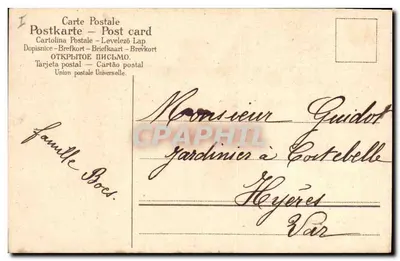 I
Carte Postale
Postkarte – Post card
Cartolina Postale – Levelező Lap
Dopisnice – Brefkort – Briefkaart – Brevkort
ОТКРЫТОЕ ПИСЬМО.
Tarjeta postal – Cartão postal
Union postale Universelle.
Monsieur Guidot
Jardinier à Costebelle
Hyères
Var
famille Boes.
CPAPHIL